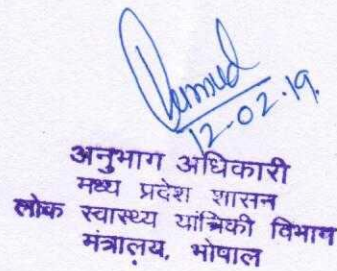 12-02-19.
अनुभाग अधिकारी
मध्य प्रदेश शासन
लोक स्वास्थ्य यांत्रिकी विभाग
मंत्रालय, भोपाल